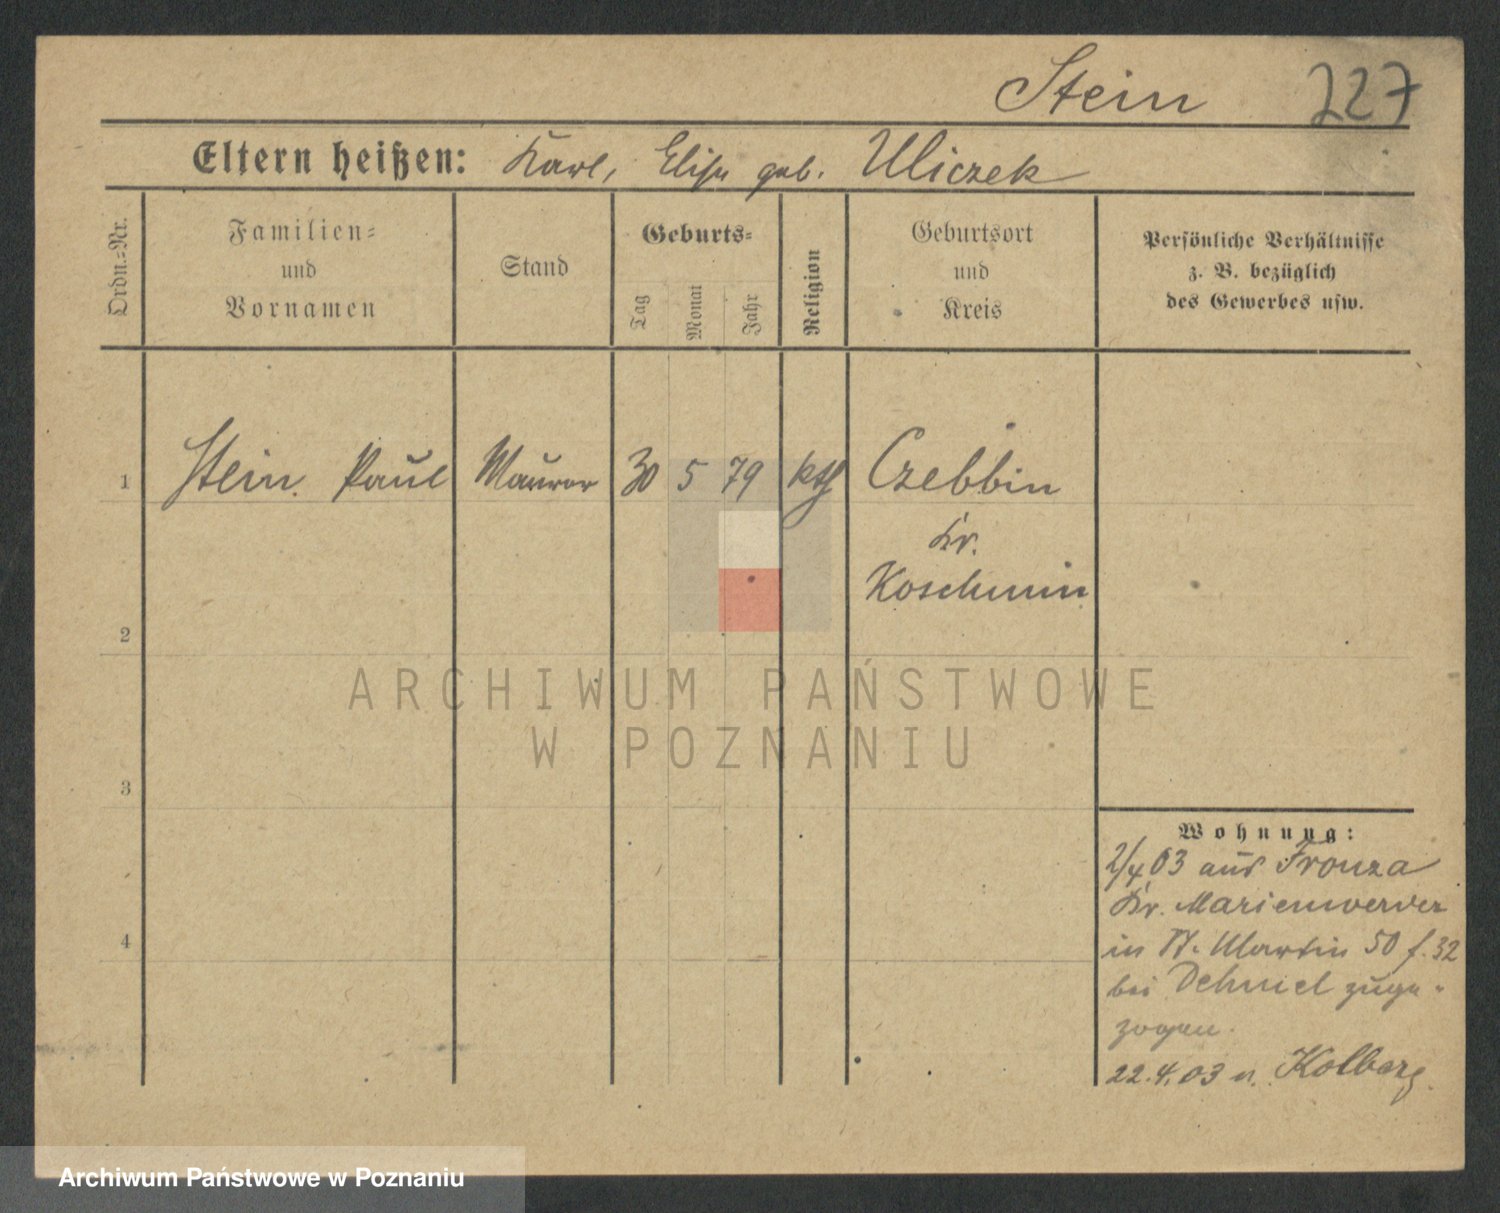 Stein 227
Eltern heißen: Karl, Elise geb. Uliczek
Ordn.-Nr.
Familien-
und
Vornamen
Stand
Geburts-
Tag
Monat
Jahr
Religion
Geburtsort
und
Kreis
Persönliche Verhältnisse
z. B. bezüglich
des Gewerbes usw.
1 Stein Paul Maurer 30 5 79 kth Czebbin
Kr.
Koschmin
2
ARCHIWUM PAŃSTWOWE
W POZNANIU
3
Wohnung:
2/4 03 aus Fronza
Kr. Marienwerder
4
in St. Martin 50 f. 32
bei Dehniel zuge-
zogen.
22.4.03 n. Kolberg.
Archiwum Państwowe w Poznaniu